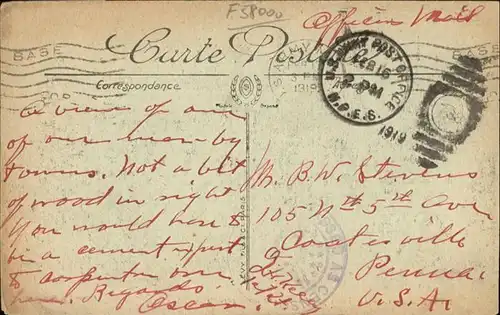 F58000
Officers Mail
BASE
BASE
Carte Postale
Correspondance
U.S. ARMY POST OFFICE
FEB 16
2 PM
M.P.E.S.
1919
A view of one
of our near-by
towns. Not a bit
of wood in sight
You would have to
be a cement expert
& carpenter over
here. Regards.
Oscar
M. B. W. Stevens
105 Nth 5th Ave
Coatesville
Penna.
U.S.A.